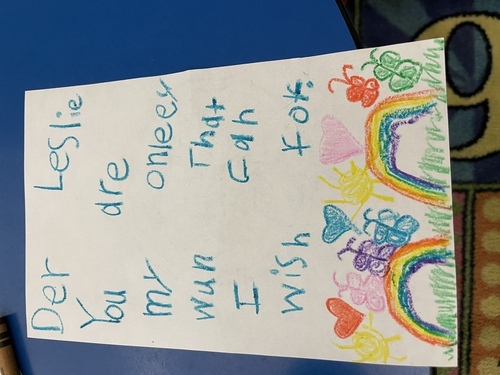 Der Leslie
You are
my onleey
wun That
I can
wish For.